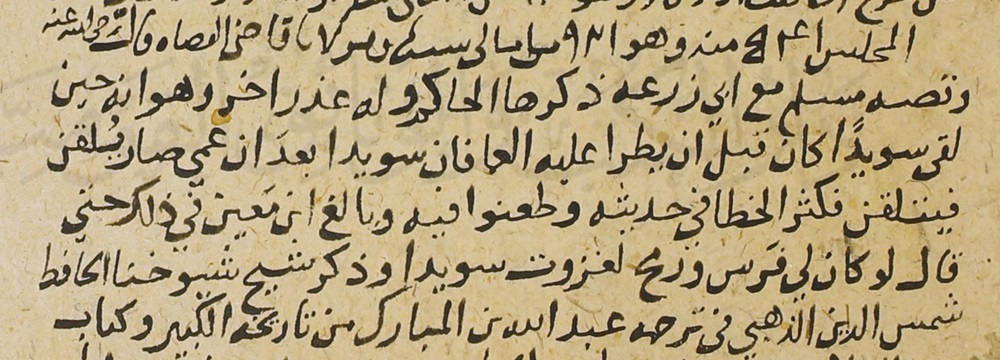 المجلس ا منه وهو قاضي القضاه قال رضي الله عنه
وقصه مسلم مع ابي زرعه ذكرها الحاكم وله عذر اخر وهو انه حين
لقي سويدًا كان قبل ان يطرا عليه العافان سويدا بعدَ ان عمي صار يُلقن
فيتلقن فكثر الخطا في حديثه وطعنوا فيه وبالغ ابن مَعين في ذلك حتي
قال لو كان لي فَرس ورمح لغزوت سويدا وذكر شيخ شيوخنا الحافظ
شمس الدين الذهبي في ترجمه عبد الله بن المبارك من تاريخه الكبير وكتاب